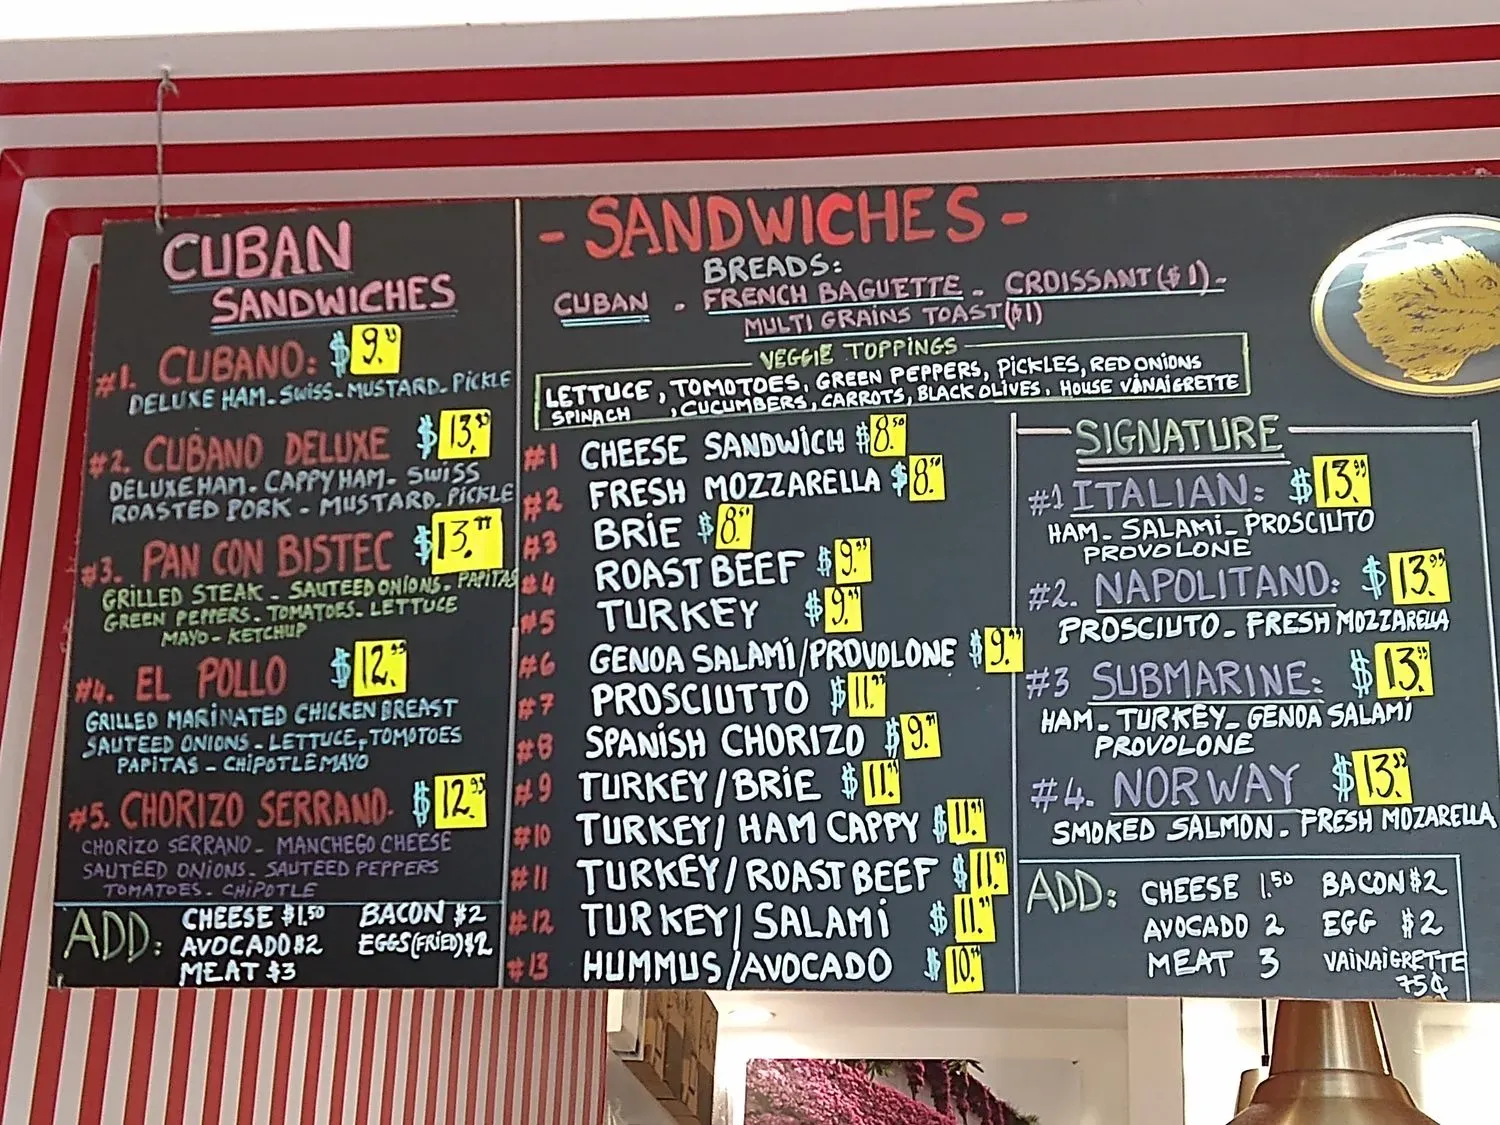 CUBAN
SANDWICHES
#1. CUBANO: $ 9.
DELUXE HAM - SWISS - MUSTARD - PICKLE
#2. CUBANO DELUXE $ 13.
DELUXE HAM - CAPPY HAM - SWISS
ROASTED PORK - MUSTARD. PICKLE
#3. PAN CON BISTEC $ 13.99
GRILLED STEAK - SAUTEED ONIONS - PAPITAS
GREEN PEPPERS - TOMATOES - LETTUCE
MAYO - KETCHUP
#4. EL POLLO $ 12.99
GRILLED MARINATED CHICKEN BREAST
SAUTEED ONIONS - LETTUCE, TOMOTOES
PAPITAS - CHIPOTLE MAYO
#5. CHORIZO SERRANO. $ 12.99
CHORIZO SERRANO - MANCHEGO CHEESE
SAUTEED ONIONS - SAUTEED PEPPERS
TOMATOES - CHIPOTLE
ADD: CHEESE $1.50 BACON $2
AVOCADO $2 EGGS (FRIED) $2
MEAT $3
- SANDWICHES -
BREADS:
CUBAN - FRENCH BAGUETTE - CROISSANT ($1) -
MULTI GRAINS TOAST ($1)
VEGGIE TOPPINGS
LETTUCE, TOMOTOES, GREEN PEPPERS, PICKLES, RED ONIONS
SPINACH , CUCUMBERS, CARROTS, BLACK OLIVES, HOUSE VANAIGRETTE
#1 CHEESE SANDWICH $ 8.50
#2 FRESH MOZZARELLA $ 8.50
#3 BRIE $ 8.50
#4 ROAST BEEF $ 9.99
#5 TURKEY $ 9.99
#6 GENOA SALAMI/PROVOLONE $ 9.99
#7 PROSCIUTTO $ 11.99
#8 SPANISH CHORIZO $ 9.99
#9 TURKEY/BRIE $ 11.99
#10 TURKEY/ HAM CAPPY $ 11.99
#11 TURKEY/ROAST BEEF $ 11.99
#12 TURKEY/SALAMI $ 11.99
#13 HUMMUS/AVOCADO $ 10.99
SIGNATURE
#1 ITALIAN: $ 13.99
HAM - SALAMI - PROSCIUTO
PROVOLONE
#2. NAPOLITANO: $ 13.99
PROSCIUTO - FRESH MOZZARELLA
#3 SUBMARINE: $ 13.99
HAM - TURKEY - GENOA SALAMI
PROVOLONE
#4. NORWAY $ 13.99
SMOKED SALMON - FRESH MOZARELLA
ADD: CHEESE 1.50 BACON $2
AVOCADO 2 EGG $2
MEAT 3 VAINAIGRETTE
75¢